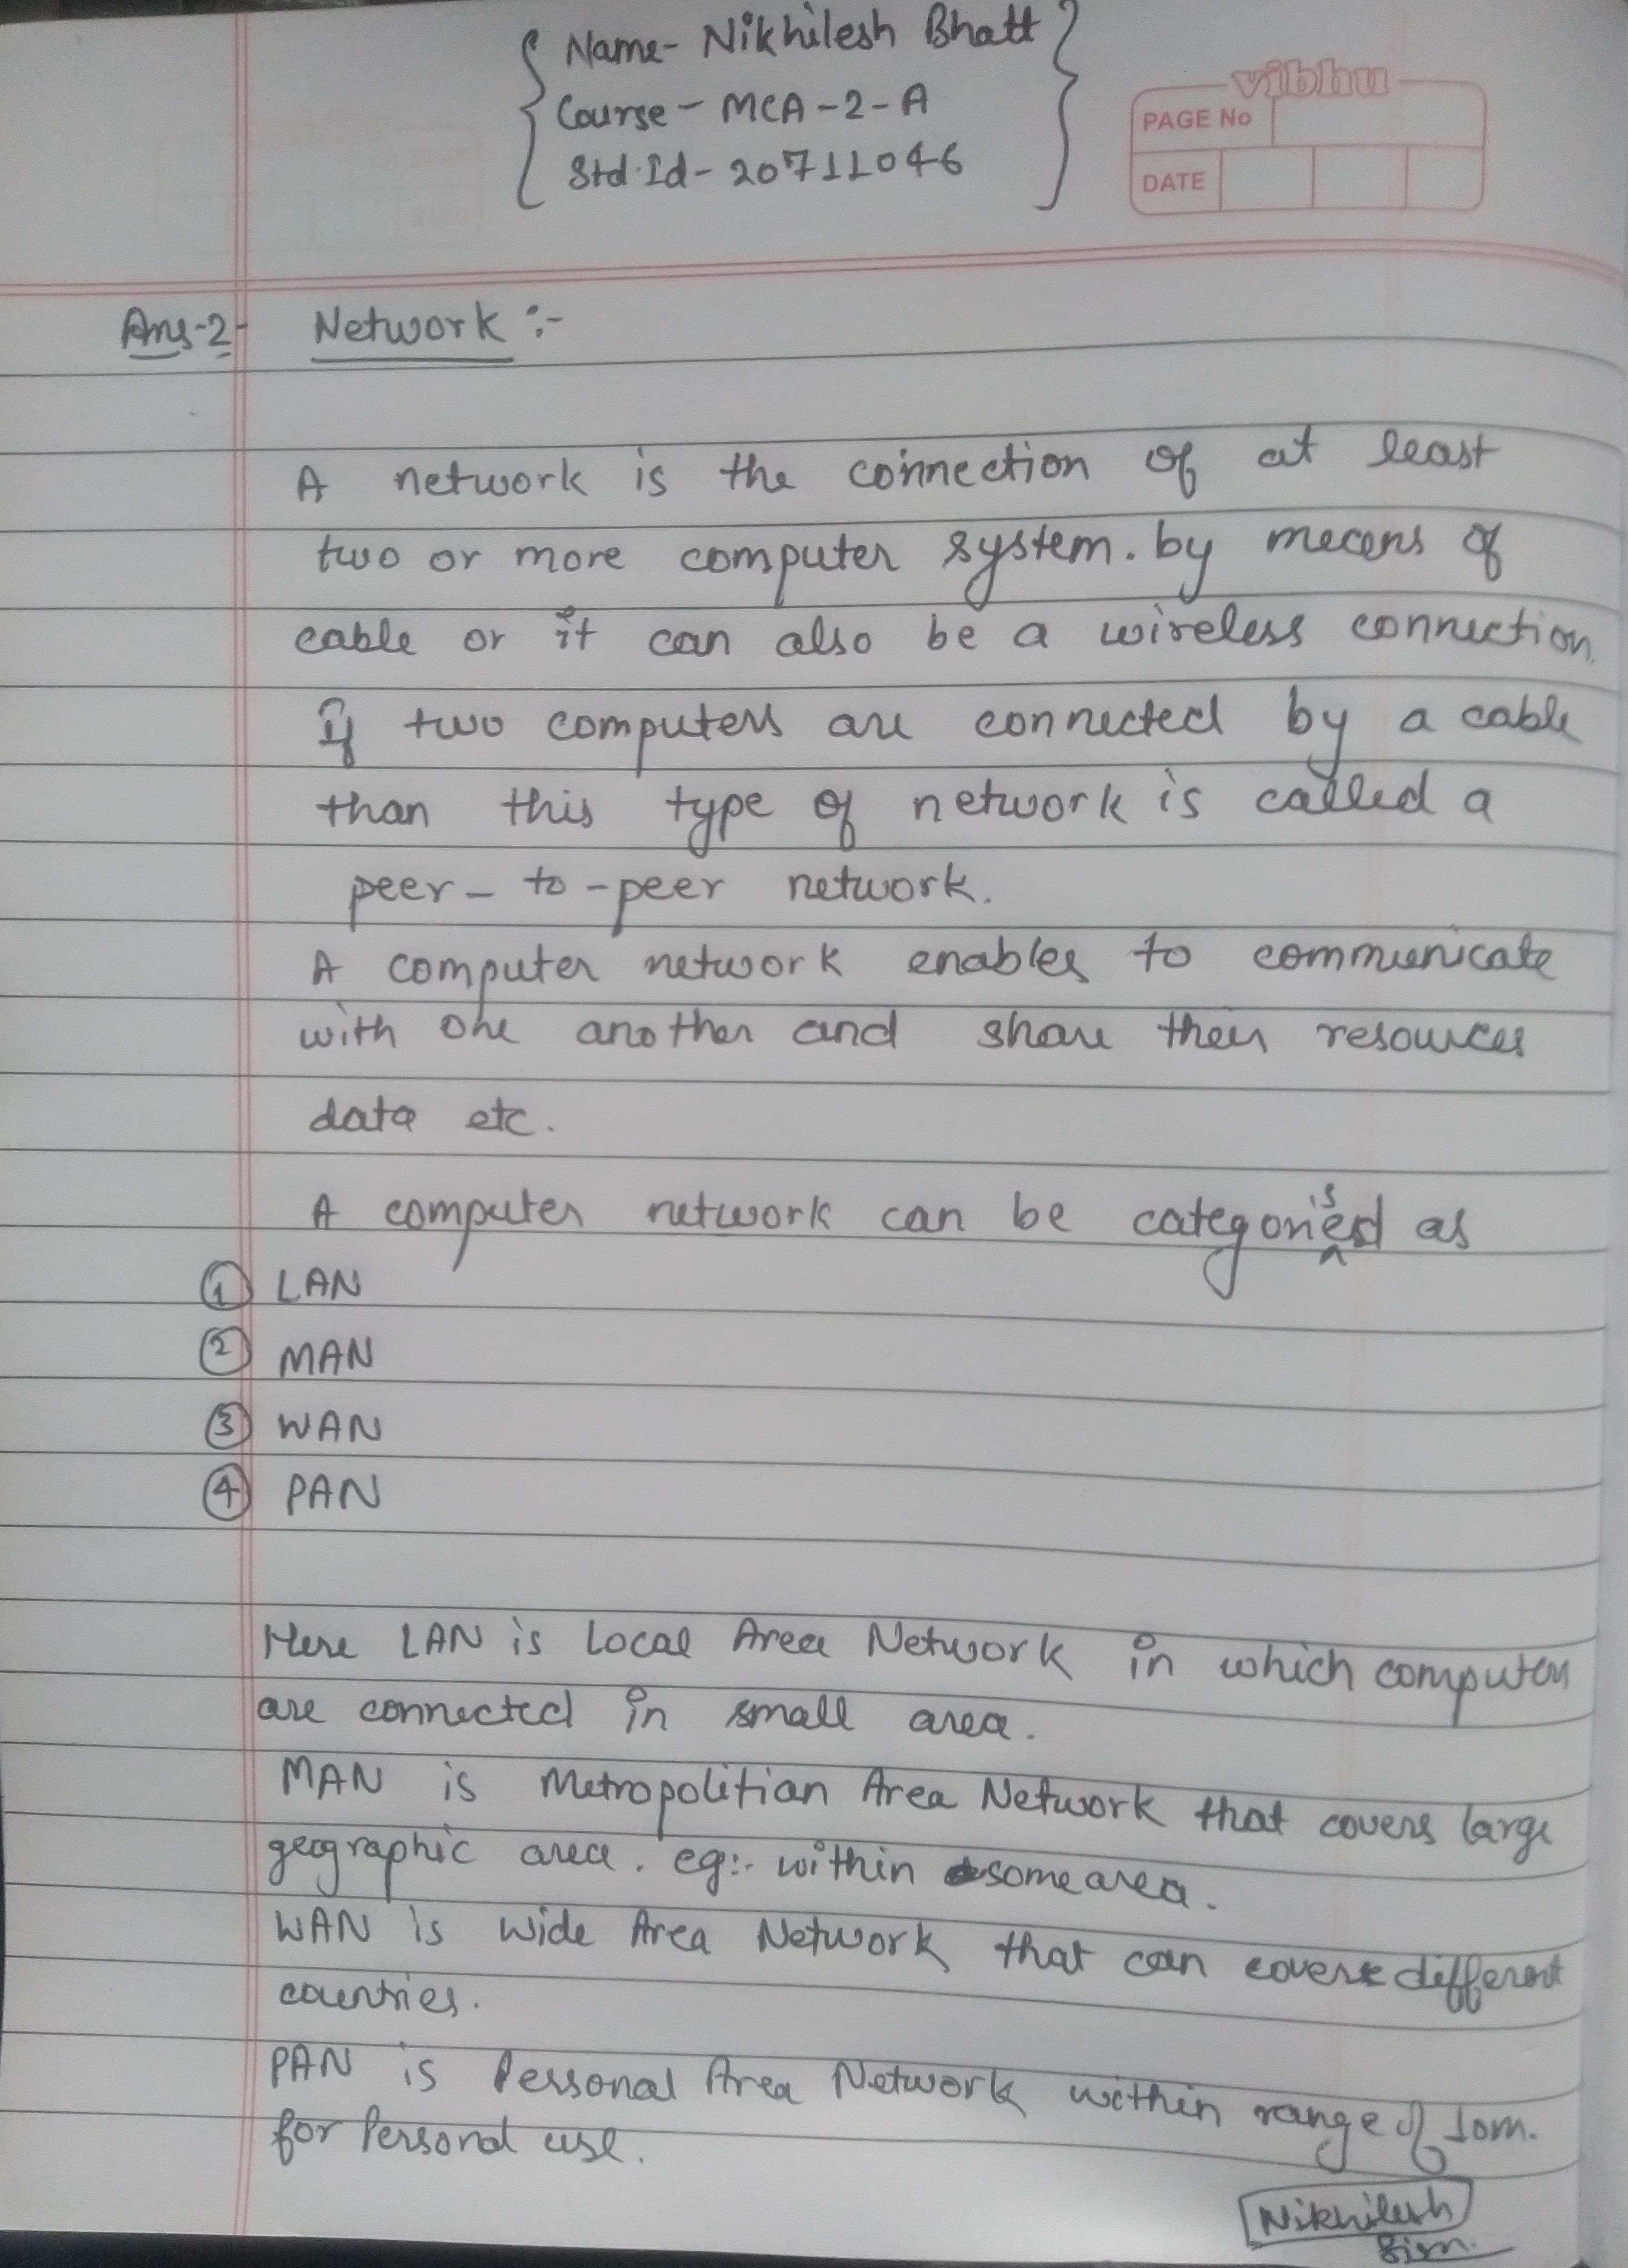 Name- Nikhilesh Bhatt
Course- MCA-2-A
Std.Id- 20711046
vibhu
PAGE No
DATE
Ans-2- Network :-
A network is the connection of at least
two or more computer system. by means of
cable or it can also be a wireless connection.
If two computers are connected by a cable
than this type of network is called a
peer-to-peer network.
A computer network enables to communicate
with one another and share their resources
data etc.
A computer network can be categorised as
① LAN
② MAN
③ WAN
④ PAN
Here LAN is Local Area Network in which computers
are connected in small area.
MAN is Metropolitian Area Network that covers large
geographic area. eg:- within some area.
WAN is Wide Area Network that can cover different
countries.
PAN is Personal Area Network within range of 10m.
for Personal use.
Nikhilesh
Sign.